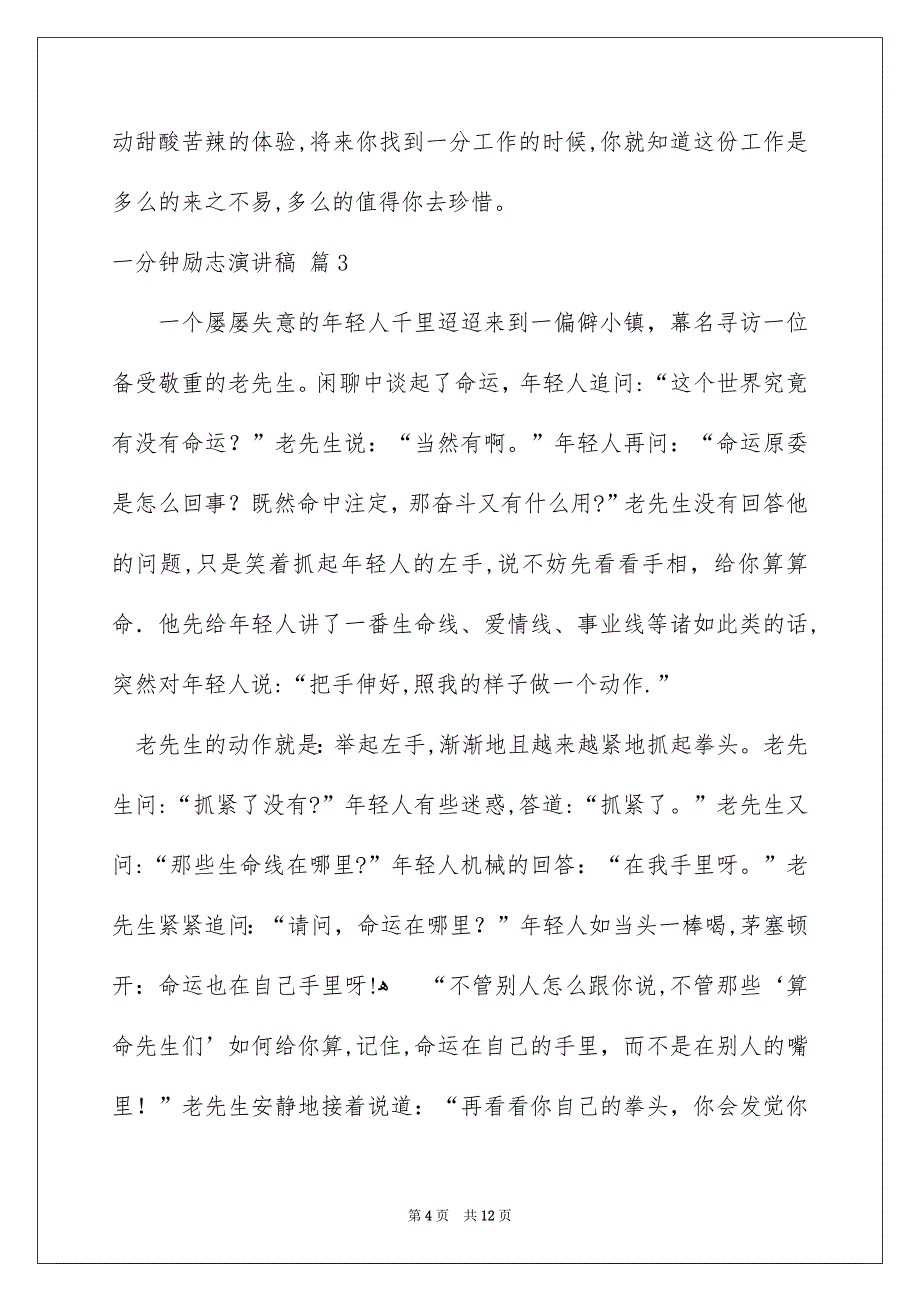 动甜酸苦辣的体验,将来你找到一分工作的时候,你就知道这份工作是
多么的来之不易,多么的值得你去珍惜。
一分钟励志演讲稿 篇3
一个屡屡失意的年轻人千里迢迢来到一偏僻小镇，幕名寻访一位
备受敬重的老先生。闲聊中谈起了命运，年轻人追问:“这个世界究竟
有没有命运？”老先生说：“当然有啊。”年轻人再问：“命运原委
是怎么回事？既然命中注定，那奋斗又有什么用?”老先生没有回答他
的问题,只是笑着抓起年轻人的左手,说不妨先看看手相，给你算算
命．他先给年轻人讲了一番生命线、爱情线、事业线等诸如此类的话,
突然对年轻人说:“把手伸好,照我的样子做一个动作.”
老先生的动作就是：举起左手,渐渐地且越来越紧地抓起拳头。老先
生问:“抓紧了没有?”年轻人有些迷惑,答道:“抓紧了。”老先生又
问:“那些生命线在哪里?”年轻人机械的回答：“在我手里呀。”老
先生紧紧追问：“请问，命运在哪里？”年轻人如当头一棒喝,茅塞顿
开：命运也在自己手里呀!ﻫ “不管别人怎么跟你说,不管那些‘算
命先生们’如何给你算,记住,命运在自己的手里，而不是在别人的嘴
里！”老先生安静地接着说道：“再看看你自己的拳头，你会发觉你
第4页 共12页